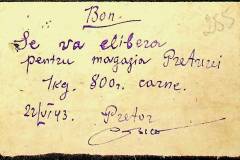 Bon.
285
Se va elibera
pentru magazia Preturei
1kg. 800gr. carne.
22/VI 43. Pretor